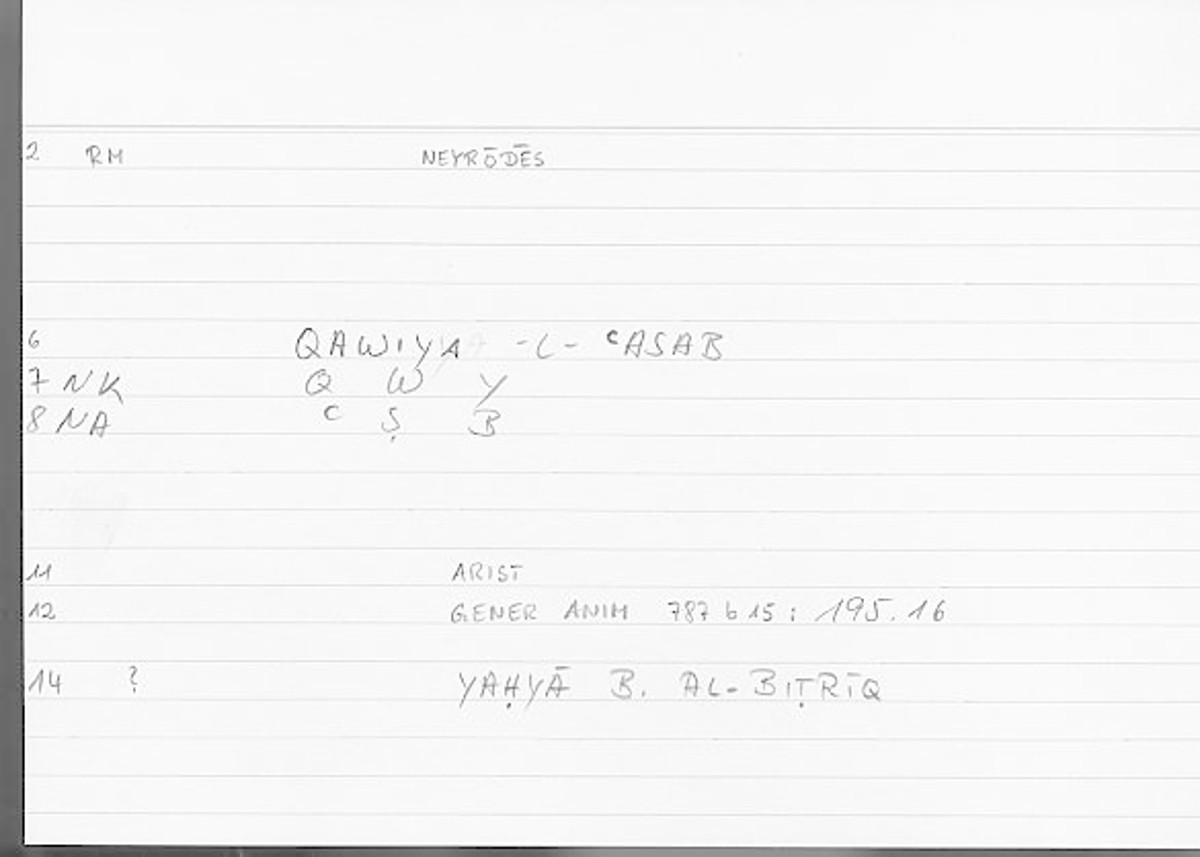 2 RM NEYRŌDĒS
6 QAWIYA -L- ʿASAB
7 NK Q W Y
8 NA ʿ Ṣ B
11 ARIST
12 GENER ANIM 787 b 15 : 195.16
14 ? YAḤYĀ B. AL-BIṬRĪQ